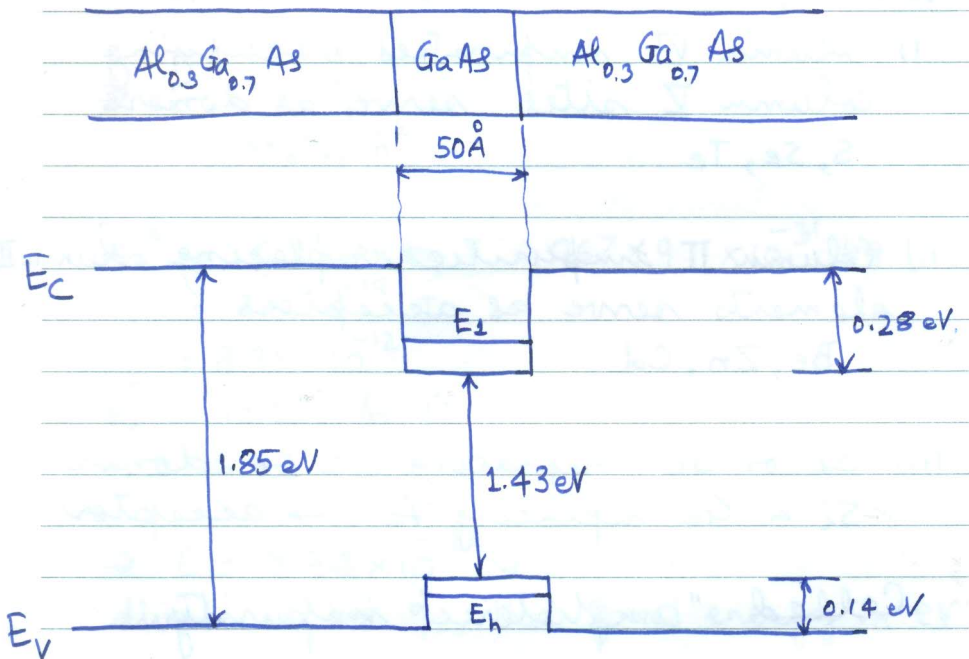 Al0.3 Ga0.7 As GaAs Al0.3 Ga0.7 As
50Å
EC
E1
0.28 eV
1.85 eV
1.43 eV
Eh
0.14 eV
EV